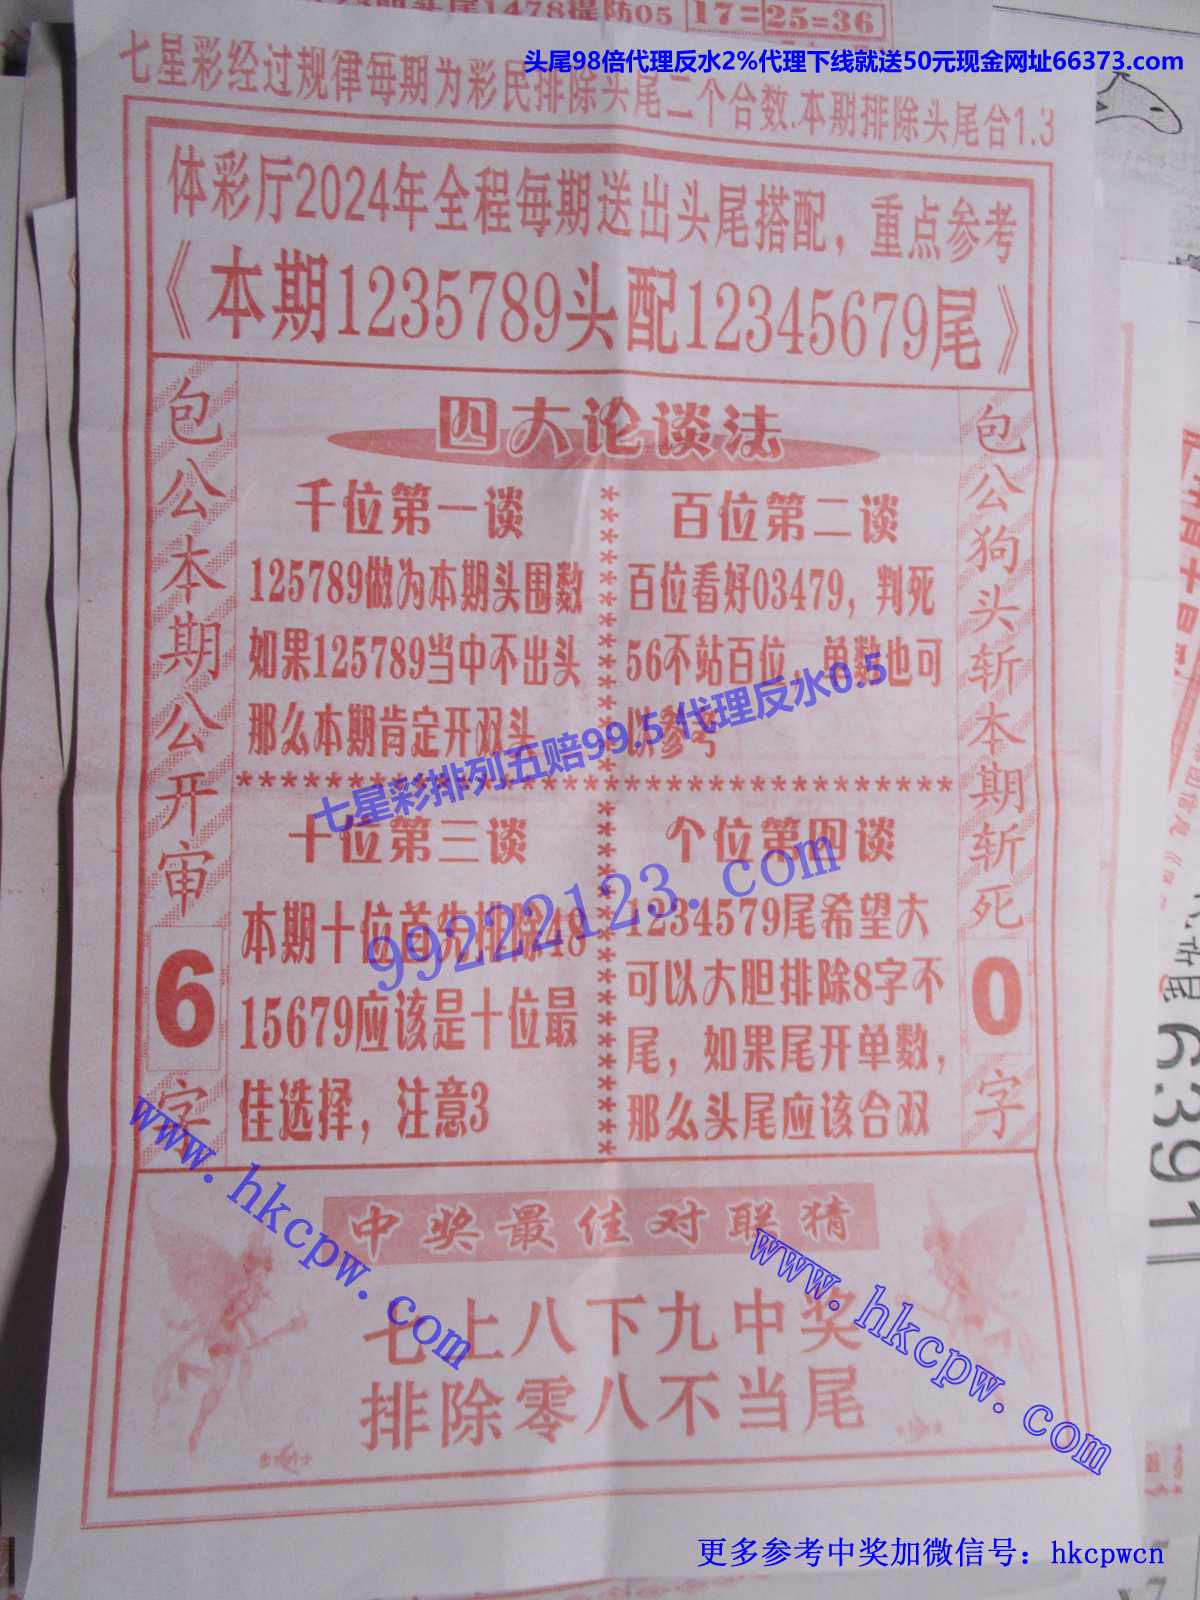 头尾1478提防05 17=25=36
头尾98倍代理反水2%代理下线就送50元现金网址66373.com
七星彩经过规律每期为彩民排除头尾二个合数.本期排除头尾合1.3
体彩厅2024年全程每期送出头尾搭配，重点参考
《本期1235789头配12345679尾》
四大论谈法
包公本期公开审6字
千位第一谈
125789做为本期头围数
如果125789当中不出头
那么本期肯定开双头
百位第二谈
百位看好03479，判死
56不站百位，单数也可
以参考
包公狗头斩本期斩死0字
七星彩排列五赔99.5 代理反水0.5
十位第三谈
本期十位首先排除48
15679应该是十位最
佳选择，注意3
个位第四谈
1234579尾希望大
可以大胆排除8字不
尾，如果尾开单数，
那么头尾应该合双
99222123.com
中奖最佳对联猜
七上八下九中奖
排除零八不当尾
www.hkcpw.com
www.hkcpw.com
尾6391
更多参考中奖加微信号：hkcpwcn